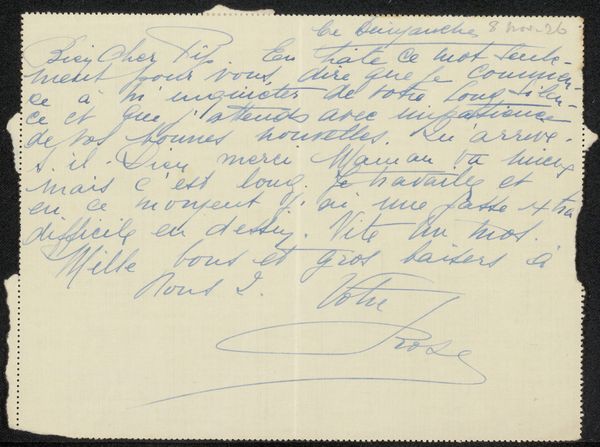 Ce Dimanche 8 nov. 26
Bien cher Pip En hâte ce mot seule-
ment pour vous dire que je commen-
ce à m'inquieter de votre long silen-
ce et que j'attends avec impatience
de vos bonnes nouvelles. Qu'arrive-
t. il. Dieu merci Maman va mieux
mais c'est long. Je travaille et
en ce moment j'ai une passe extra
difficile en dessin. Vite un mot.
Mille bons et gros baisers à
Vous 2. Votre
Rose